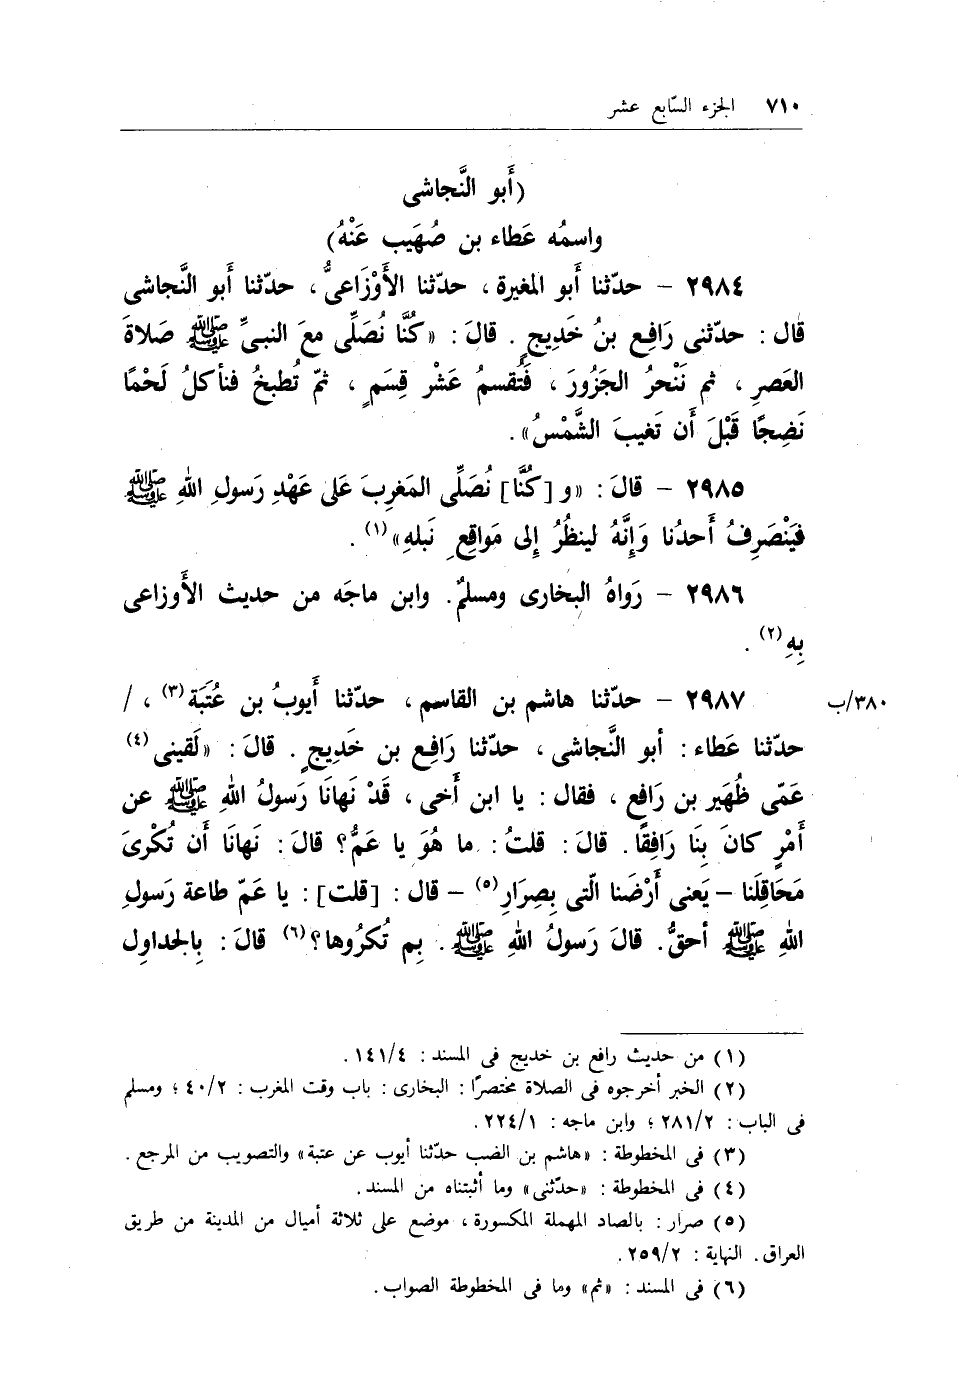 ٧١٠ الجزء السّابع عشر
(أَبو النَّجاشى
واسمُه عَطاء بن صُهَيب عَنْهُ)
٢٩٨٤ – حدّثنا أَبو المغيرة ، حدّثنا الأَوْزَاعىُّ ، حدّثنا أَبو النَّجاشى
قال : حدّثنى رَافِع بنُ خَدِيجٍ . قالَ : «كُنَّا نُصَلِّى معَ النبىِّ ﷺ صَلاةَ
العَصرِ ، ثم نَنْحرُ الجَزُورَ ، فَتُقسمُ عَشْر قِسَمٍ ، ثمّ تُطبخُ فنأكلُ لَحْمًا
نَضِجًا قَبْلَ أَن تَغيبَ الشَّمْسُ» .
٢٩٨٥ – قالَ : «و [كُنَّا] نُصَلِّى المَغرِبَ عَلى عَهْدِ رَسولِ اللهِ ﷺ
فيَنْصَرِفُ أَحدُنا وَإِنَّهُ لينظُرُ إِلى مَواقِعِ نَبلهِ»(١) .
٢٩٨٦ – رَواهُ البخارى ومسلمٌ. وابن ماجَه من حديث الأَوزاعى
بِهِ(٢) .
٢٩٨٧ – حدّثنا هاشم بن القاسم ، حدّثنا أَيوبُ بن عُتَبَة(٣) ، /
٣٨٠/ب
حدّثنا عَطاء : أبو النَّجاشى ، حدّثنا رَافِع بن خَدِيجٍ . قالَ : «لَقينى(٤)
عَمّى ظُهَير بن رَافع ، فقال : يا ابن أَخى ، قَدْ نَهانَا رَسولُ اللهِ ﷺ عن
أَمْرٍ كانَ بِنَا رَافِقًا. قالَ : قلتُ : ما هُوَ يا عَمُّ؟ قالَ : نَهانَا أَن تُكْرىَ
مَحَاقِلَنا – يَعنى أَرْضَنا الّتى بِصِرَارِ(٥) – قال : [قلت] : يا عَمّ طاعة رَسولِ
اللهِ ﷺ أحقُّ. قالَ رَسولُ اللهِ ﷺ. بِم تُكرُوها؟(٦) قالَ : بِالجداولِ
(١) من حديث رافع بن خديج فى المسند : ١٤١/٤ .
(٢) الخبر أخرجوه فى الصلاة مختصرًا : البخارى : باب وقت المغرب : ٤٠/٢ ؛ ومسلم
فى الباب : ٢٨١/٢ ؛ وابن ماجه : ٢٢٤/١ .
(٣) فى المخطوطة : «هاشم بن الضب حدّثنا أيوب عن عتبة» والتصويب من المرجع .
(٤) فى المخطوطة : «حدّثنى» وما أثبتناه من المسند.
(٥) صرار : بالصاد المهملة المكسورة ، موضع على ثلاثة أميال من المدينة من طريق
العراق. النهاية : ٢٥٩/٢ .
(٦) فى المسند : «ثم» وما فى المخطوطة الصواب.